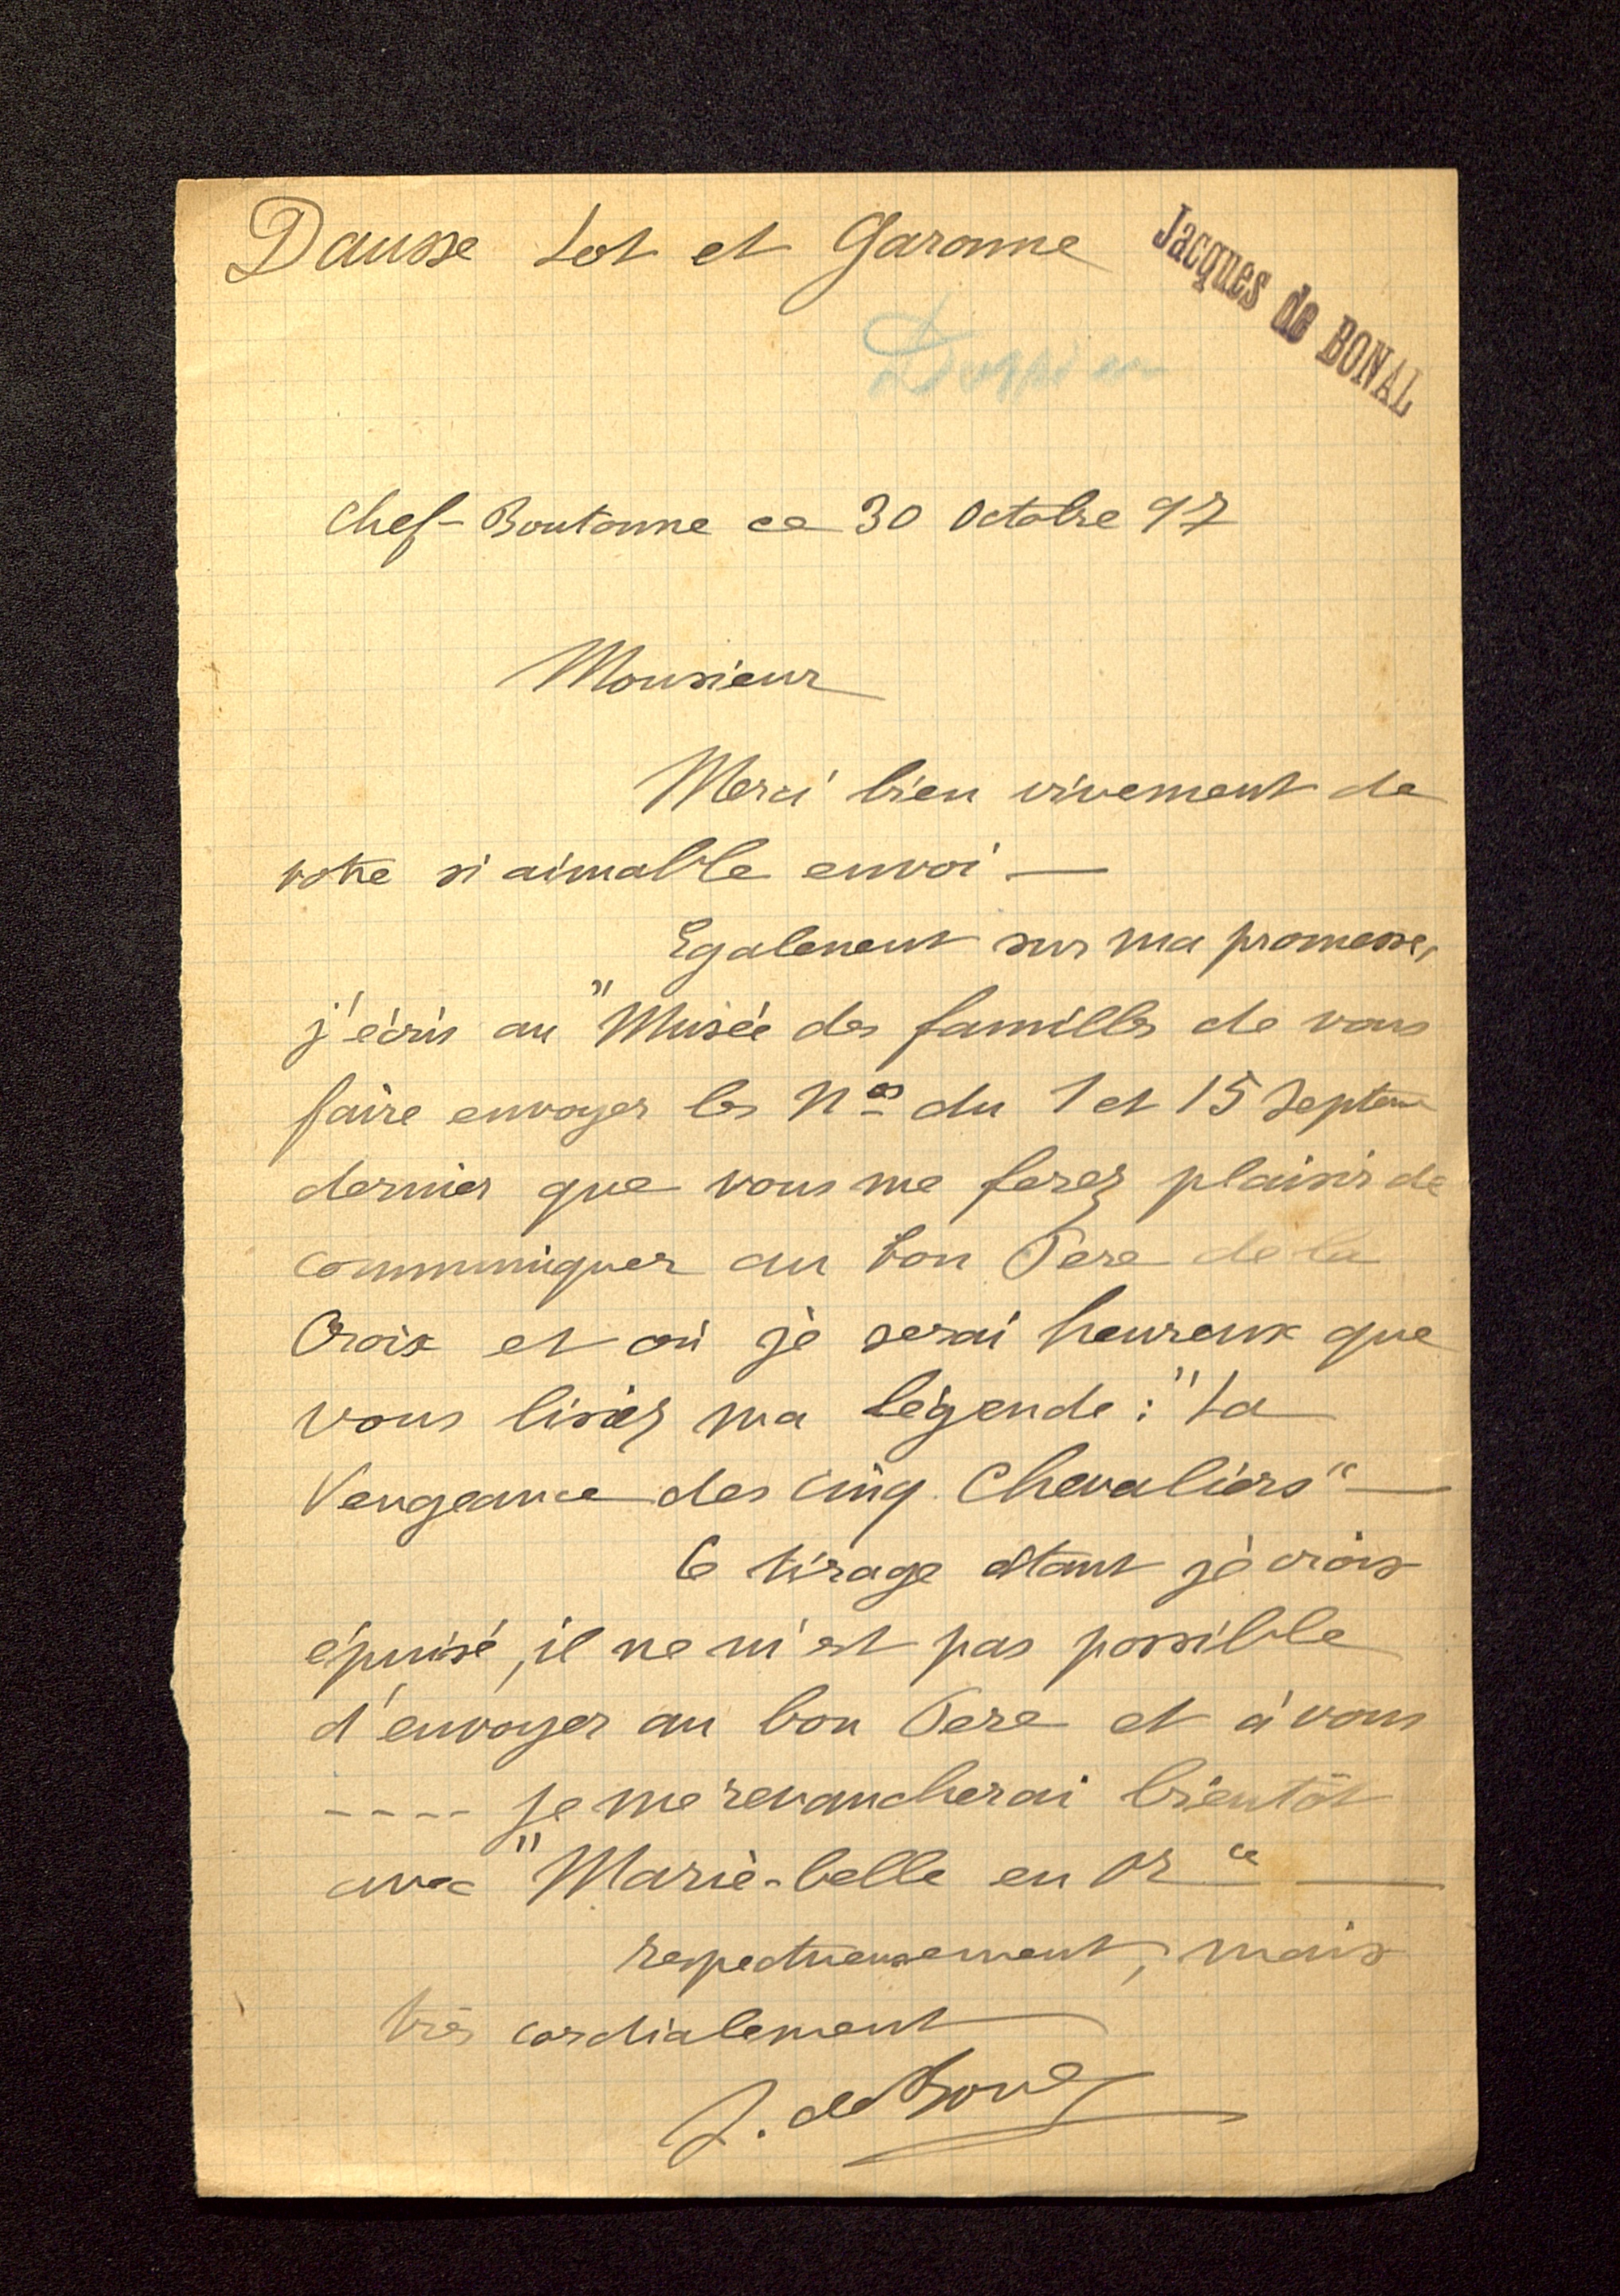 Dausse Lot et Garonne
Jacques de BONAL
Dossier
Chef-Boutonne ce 30 Octobre 97
Monsieur
Merci bien vivement de
votre si aimable envoi —
Egalement sur ma promesse,
j'écris au "Musée des familles de vous
faire envoyer les Nos du 1 et 15 Septem
dernier que vous me ferez plaisir de
communiquer au bon Pere de la
Croix et où je serai heureux que
vous lisiez ma légende : "La
Vengeance des cinq Chevaliers" —
Ce tirage étant je crois
épuisé, il ne m'est pas possible
d'envoyer au bon Pere et à vous
---- je me revancherai bientôt
avec "Marie-belle en Or" —
respectueusement, mais
très cordialement
J. de Bonal